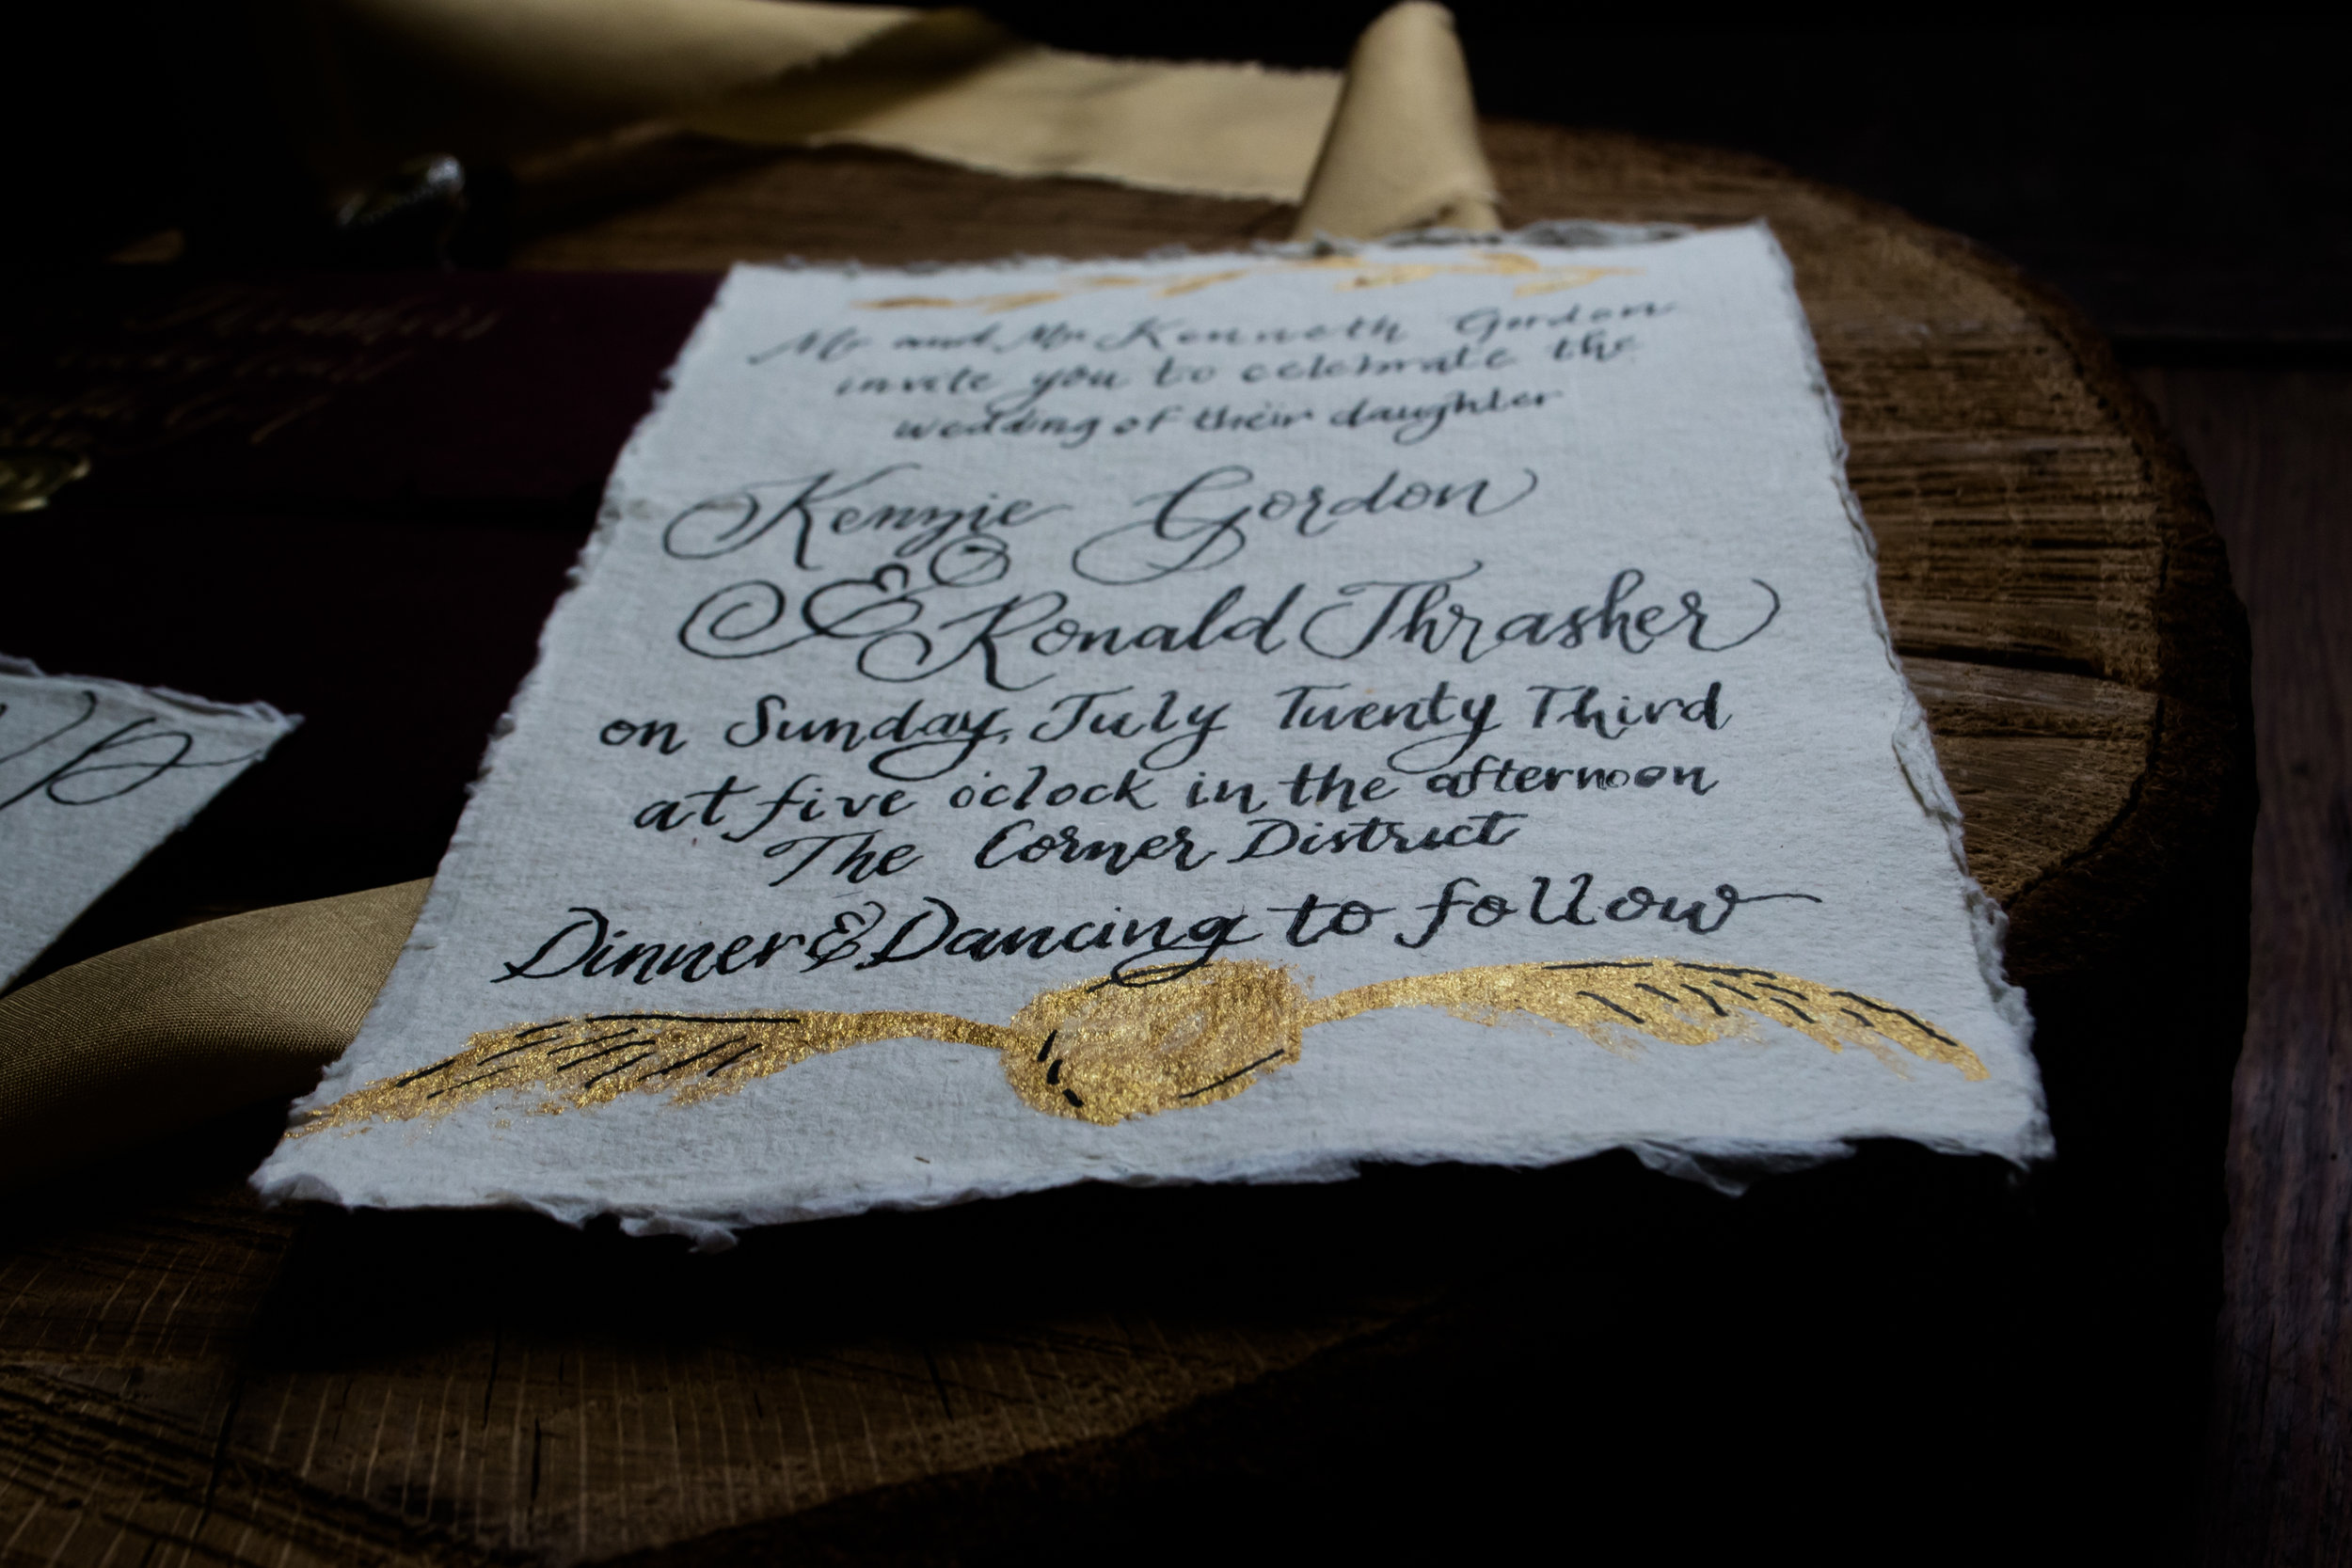 Mr and Mrs Kenneth Gordon
invite you to celebrate the
wedding of their daughter
Kenzie Gordon
& Ronald Thrasher
on Sunday, July Twenty Third
at five o'clock in the afternoon
The Corner District
Dinner & Dancing to follow